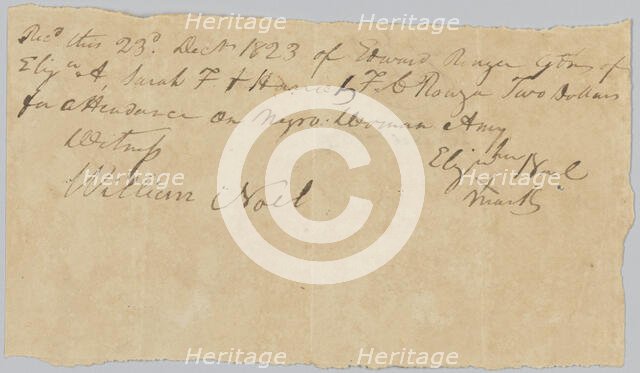 Recd this 23d. Decr 1823 of Edward Rouzee Gdn of
Elizth A, Sarah F & Harriet F. C Rouzee Two Dollars
for attendance on Negro Woman Amy
Witness
Elizth her Noel
William Noel
mark
Heritage
Heritage
Heritage
Heritage
Heritage
Heritage